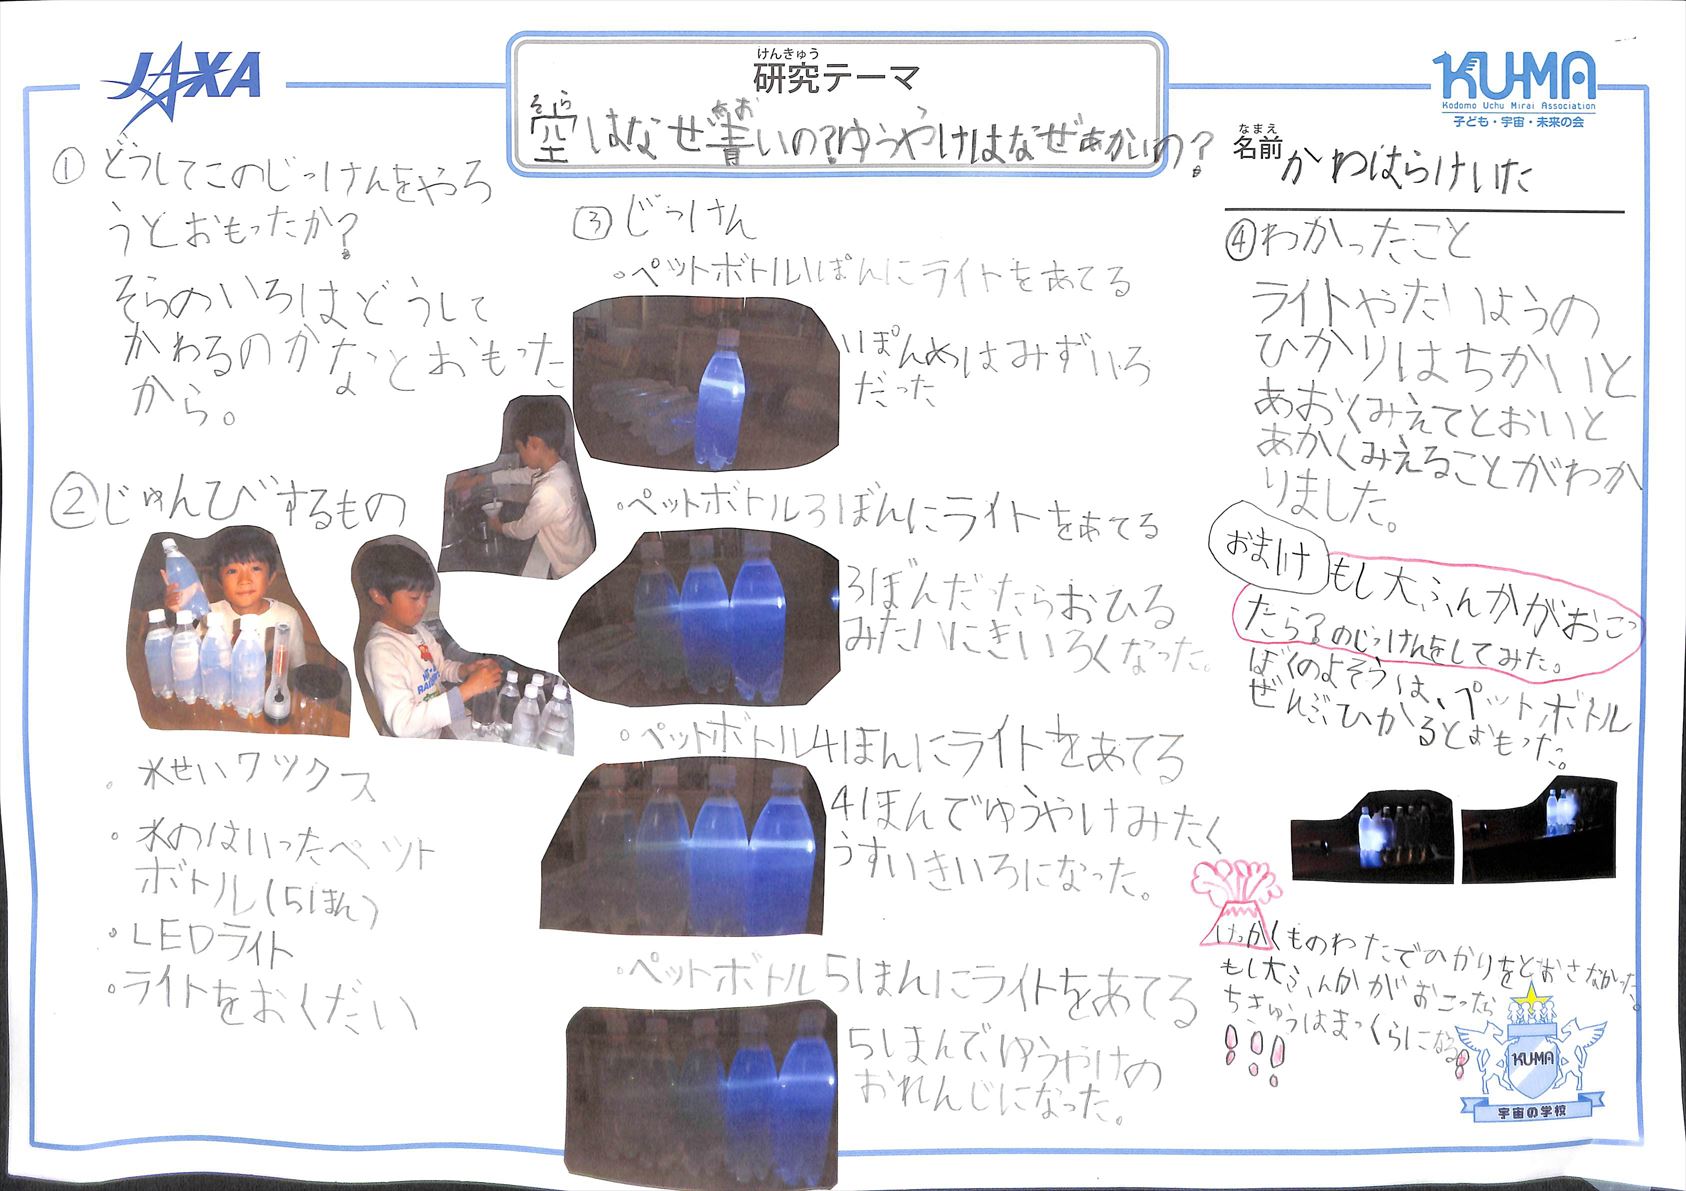 JAXA
けんきゅう
研究テーマ
そら あお
空はなぜ青いの?ゆうやけはなぜあかいの?
KU-MA
Kodomo Uchu Mirai Association
子ども・宇宙・未来の会
なまえ
名前 かわはらけいた
① どうしてこのじっけんをやろ
うとおもったか?
そらのいろはどうして
かわるのかなとおもった
から。
② じゅんびするもの
・水せいワックス
・水のはいったペット
ボトル(5ほん)
・LEDライト
・ライトをおくだい
③ じっけん
・ペットボトル1ぽんにライトをあてる
1ぽんめはみずいろ
だった
・ペットボトル3ぼんにライトをあてる
3ぼんだったらおひる
みたいにきいろくなった。
・ペットボトル4ほんにライトをあてる
4ほんでゆうやけみたく
うすいきいろになった。
・ペットボトル5ほんにライトをあてる
5ほんで、ゆうやけの
おれんじになった。
④ わかったこと
ライトやたいようの
ひかりはちかいと
あおくみえてとおいと
あかくみえることがわか
りました。
おまけ
もし大ふんかがおこっ
たら?のじっけんをしてみた。
ぼくのよそうは、ペットボトル
ぜんぶひかるとおもった。
けっかくものわたでひかりをとおさなかった。
もし大ふんかがおこったら
ちきゅうはまっくらになる!
!!!
KUMA
宇宙の学校